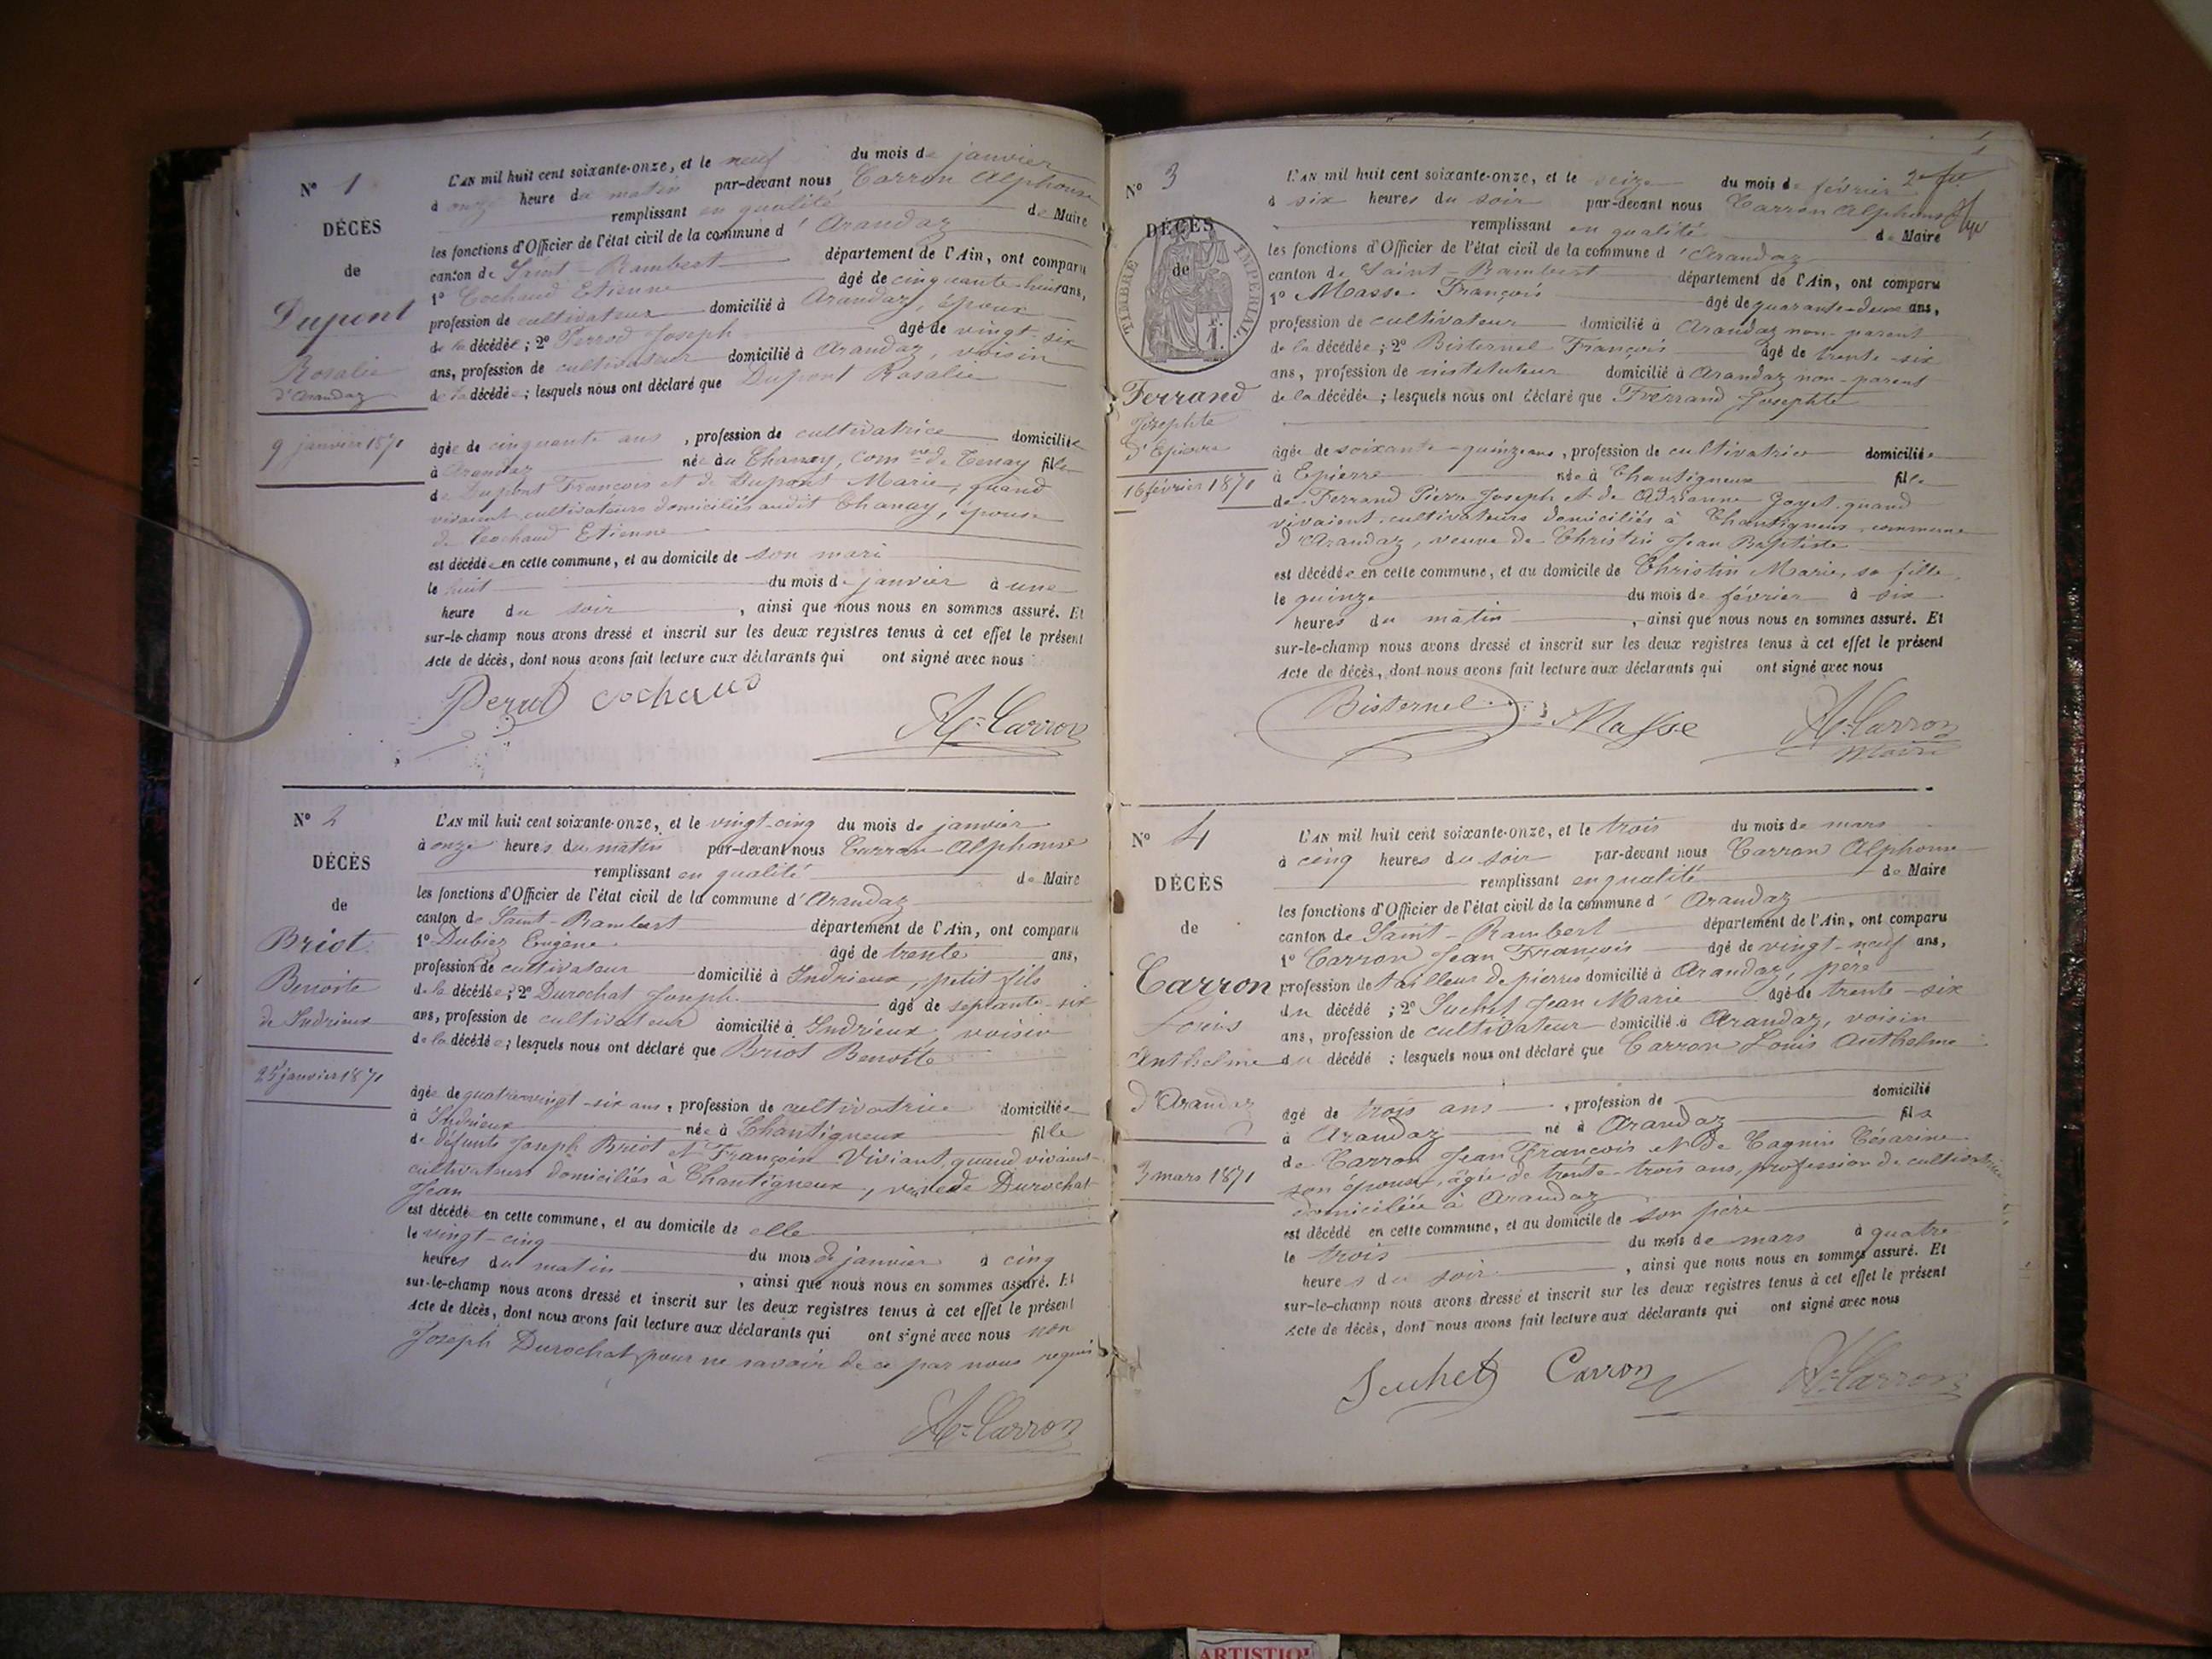 N° 1
DÉCÈS
de
Dupont
Rosalie
d'Arandaz
9 janvier 1871
L'AN mil huit cent soixante-onze, et le neuf du mois de janvier
à onze heure du matin par-devant nous Carron Alphonse
remplissant en qualité de Maire
les fonctions d'Officier de l'état civil de la commune d'Arandaz
canton de Saint-Rambert département de l'Ain, ont comparu
1° Cochaud Etienne âgé de cinquante-huit ans,
profession de cultivateur domicilié à Arandaz, époux
de la décédée; 2° Perrod Joseph âgé de vingt-six
ans, profession de cultivateur domicilié à Arandaz, voisin
de la décédée; lesquels nous ont déclaré que Dupont Rosalie
âgée de cinquante ans, profession de cultivatrice domiciliée
à Arandaz née au Chanay, comne de Tenay fille
de Dupont François et de Dupont Marie, quand
vivaient cultivateurs domiciliés audit Chanay, épouse
de Cochaud Etienne
est décédée en cette commune, et au domicile de son mari
le huit du mois de janvier à une
heure du soir, ainsi que nous nous en sommes assuré. Et
sur-le-champ nous avons dressé et inscrit sur les deux registres tenus à cet effet le présent
Acte de décès, dont nous avons fait lecture aux déclarants qui ont signé avec nous
Perrod Cochaud
Ae-Carron
N° 2
DÉCÈS
de
Briot
Benoite
de Indrieux
25 janvier 1871
L'AN mil huit cent soixante-onze, et le vingt-cinq du mois de janvier
à onze heures du matin par-devant nous Carron Alphonse
remplissant en qualité de Maire
les fonctions d'Officier de l'état civil de la commune d'Arandaz
canton de Saint-Rambert département de l'Ain, ont comparu
1° Dubiez Eugène âgé de trente ans,
profession de cultivateur domicilié à Indrieux, petit fils
de la décédée; 2° Durochat Joseph âgé de septante-six
ans, profession de cultivateur domicilié à Indrieux, voisin
de la décédée; lesquels nous ont déclaré que Briot Benoite
âgée de quatre-vingt-six ans, profession de cultivatrice domiciliée
à Indrieux née à Chantigneux fille
de défunts Joseph Briot et Françoise Viviant, quand vivaient
cultivateurs domiciliés à Chantigneux, veuve de Durochat
Jean
est décédée en cette commune, et au domicile de elle
le vingt-cinq du mois de janvier à cinq
heures du matin, ainsi que nous nous en sommes assuré. Et
sur-le-champ nous avons dressé et inscrit sur les deux registres tenus à cet effet le présent
Acte de décès, dont nous avons fait lecture aux déclarants qui ont signé avec nous non
Joseph Durochat pour ne savoir de ce par nous requis
Ae-Carron
N° 3
DÉCÈS
de
TIMBRE IMPÉRIAL
Ferrand
Josephte
d'Epierre
16 février 1871
L'AN mil huit cent soixante-onze, et le seize du mois de février
à six heures du soir par-devant nous Carron Alphonse
remplissant en qualité de Maire
les fonctions d'Officier de l'état civil de la commune d'Arandaz
canton de Saint-Rambert département de l'Ain, ont comparu
1° Masse François âgé de quarante-deux ans,
profession de cultivateur domicilié à Arandaz non-parent
de la décédée; 2° Bisternel François âgé de trente-six
ans, profession de instituteur domicilié à Arandaz non-parent
de la décédée; lesquels nous ont déclaré que Ferrand Josephte
âgée de soixante-quinze ans, profession de cultivatrice domiciliée
à Epierre née à Chantigneux fille
de Ferrand Pierre Joseph et de Adrianne Goyet quand
vivaient cultivateurs domiciliés à Chantigneux, commune
d'Arandaz, veuve de Christin Jean Baptiste
est décédée en cette commune, et au domicile de Christin Marie, sa fille
le quinze du mois de février à six
heures du matin, ainsi que nous nous en sommes assuré. Et
sur-le-champ nous avons dressé et inscrit sur les deux registres tenus à cet effet le présent
Acte de décès, dont nous avons fait lecture aux déclarants qui ont signé avec nous
Bisternel Masse Ae-Carron
Maire
N° 4
DÉCÈS
de
Carron
Louis
Anthelme
d'Arandaz
3 mars 1871
L'AN mil huit cent soixante-onze, et le trois du mois de mars
à cinq heures du soir par-devant nous Carron Alphonse
remplissant en qualité de Maire
les fonctions d'Officier de l'état civil de la commune d'Arandaz
canton de Saint-Rambert département de l'Ain, ont comparu
1° Carron Jean François âgé de vingt-neuf ans,
profession de tailleur de pierres domicilié à Arandaz, père
du décédé; 2° Suchet Jean Marie âgé de trente-six
ans, profession de cultivateur domicilié à Arandaz, voisin
du décédé; lesquels nous ont déclaré que Carron Louis Anthelme
âgé de trois ans, profession de domicilié
à Arandaz né à Arandaz fils
de Carron Jean François et de Cagnin Césarine
son épouse, âgée de trente-trois ans, profession de cultivatrice
domiciliée à Arandaz
est décédé en cette commune, et au domicile de son père
le trois du mois de mars à quatre
heures du soir, ainsi que nous nous en sommes assuré. Et
sur-le-champ nous avons dressé et inscrit sur les deux registres tenus à cet effet le présent
Acte de décès, dont nous avons fait lecture aux déclarants qui ont signé avec nous
Suchet Carron Ae-Carron
ARTISTIQ